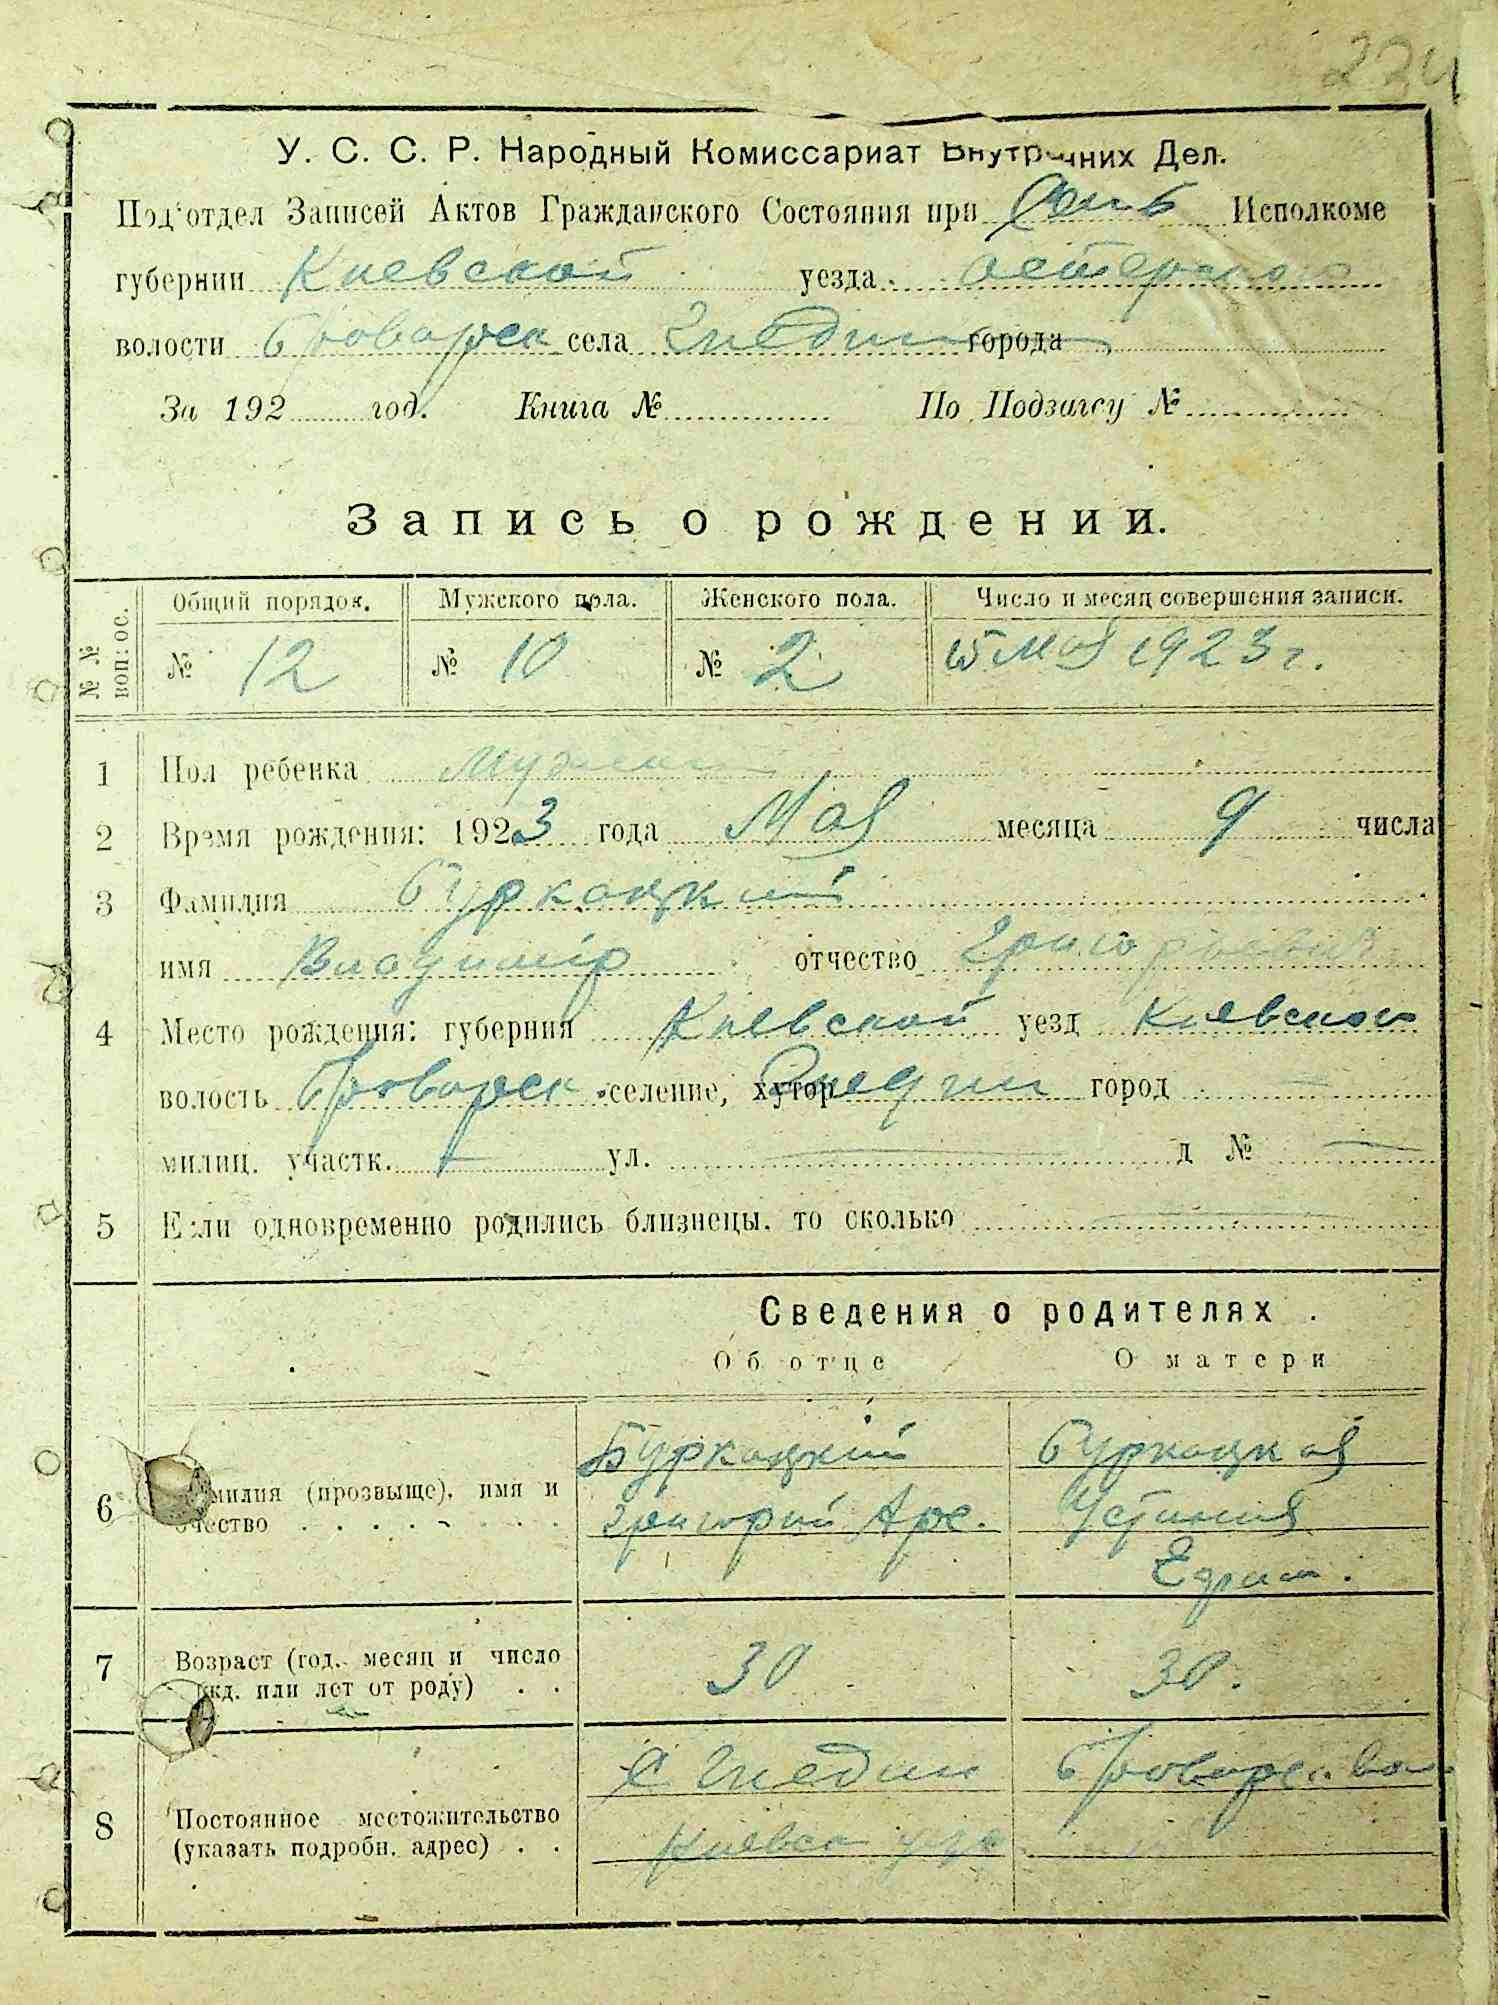 224
У. С. С. Р. Народный Комиссариат Внутренних Дел.
Под'отдел Записей Актов Гражданского Состояния при Исполкоме
губернии Киевской уезда Остерского
волости Броварск села Гнедин города
За 192 год. Книга № По Подзагсу №
Запись о рождении.
№ № воп: ос. Общий порядок. Мужского пола. Женского пола. Число и месяц совершения записи.
№ 12 № 10 № 2 15 Мая 1923 г.
1 Пол ребенка Мужской
2 Время рождения: 1923 года Мая месяца 9 числа
3 Фамилия Буркацкий
имя Владимір отчество Григорьевич
4 Место рождения: губерния Киевской уезд Киевского
волость Броварск селение, хутор Гнедин город —
милиц. участк. — ул. — д № —
5 Если одновременно родились близнецы, то сколько —
Сведения о родителях
Об отце О матери
6 Фамилия (прозвыще), имя и Буркацкий Буркацкая
отчество Григорий Арс. Устиния
Ефрим.
7 Возраст (год, месяц и число 30 30.
ржд. или лет от роду)
8 Постоянное местожительство С Гнедин Броварск. вол
(указать подробн. адрес) Киевск у